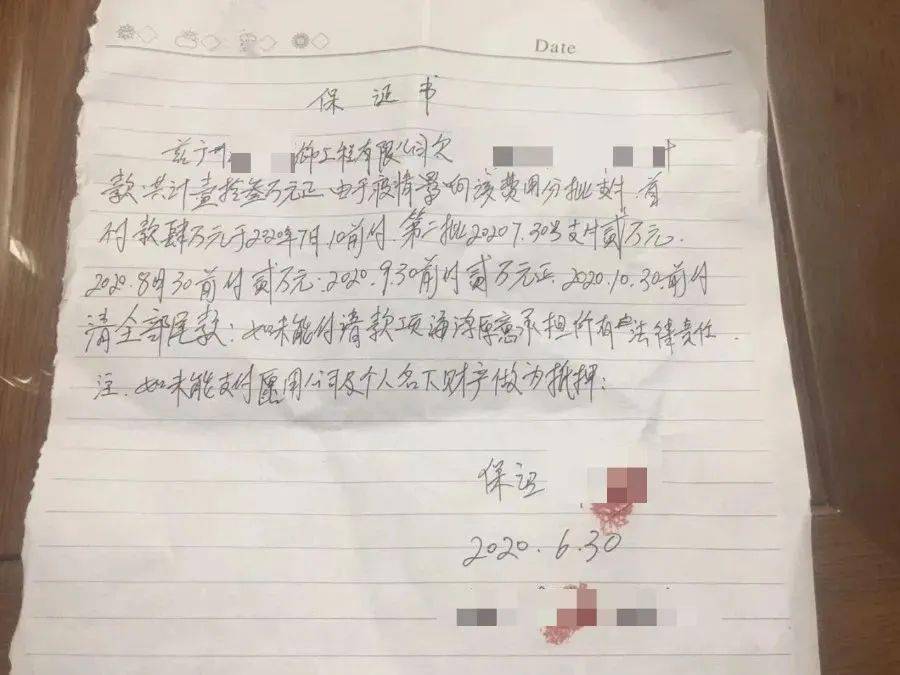 Date
保证书
兹广州 饰工程有限公司欠
款:共计壹拾叁万元正.由于疫情影响该费用分批支付.首
付款肆万元于2020年7月10前付.第二批2020 7.30号支付贰万元.
2020.8月30前付贰万元.2020.9.30前付贰万元正.2020.10.30.前付
清全部尾数;如未能付清款项 愿意承担所有 法律责任.
注.如未能支付愿用公司及个人名下财产做为抵押;
保证
2020.6.30